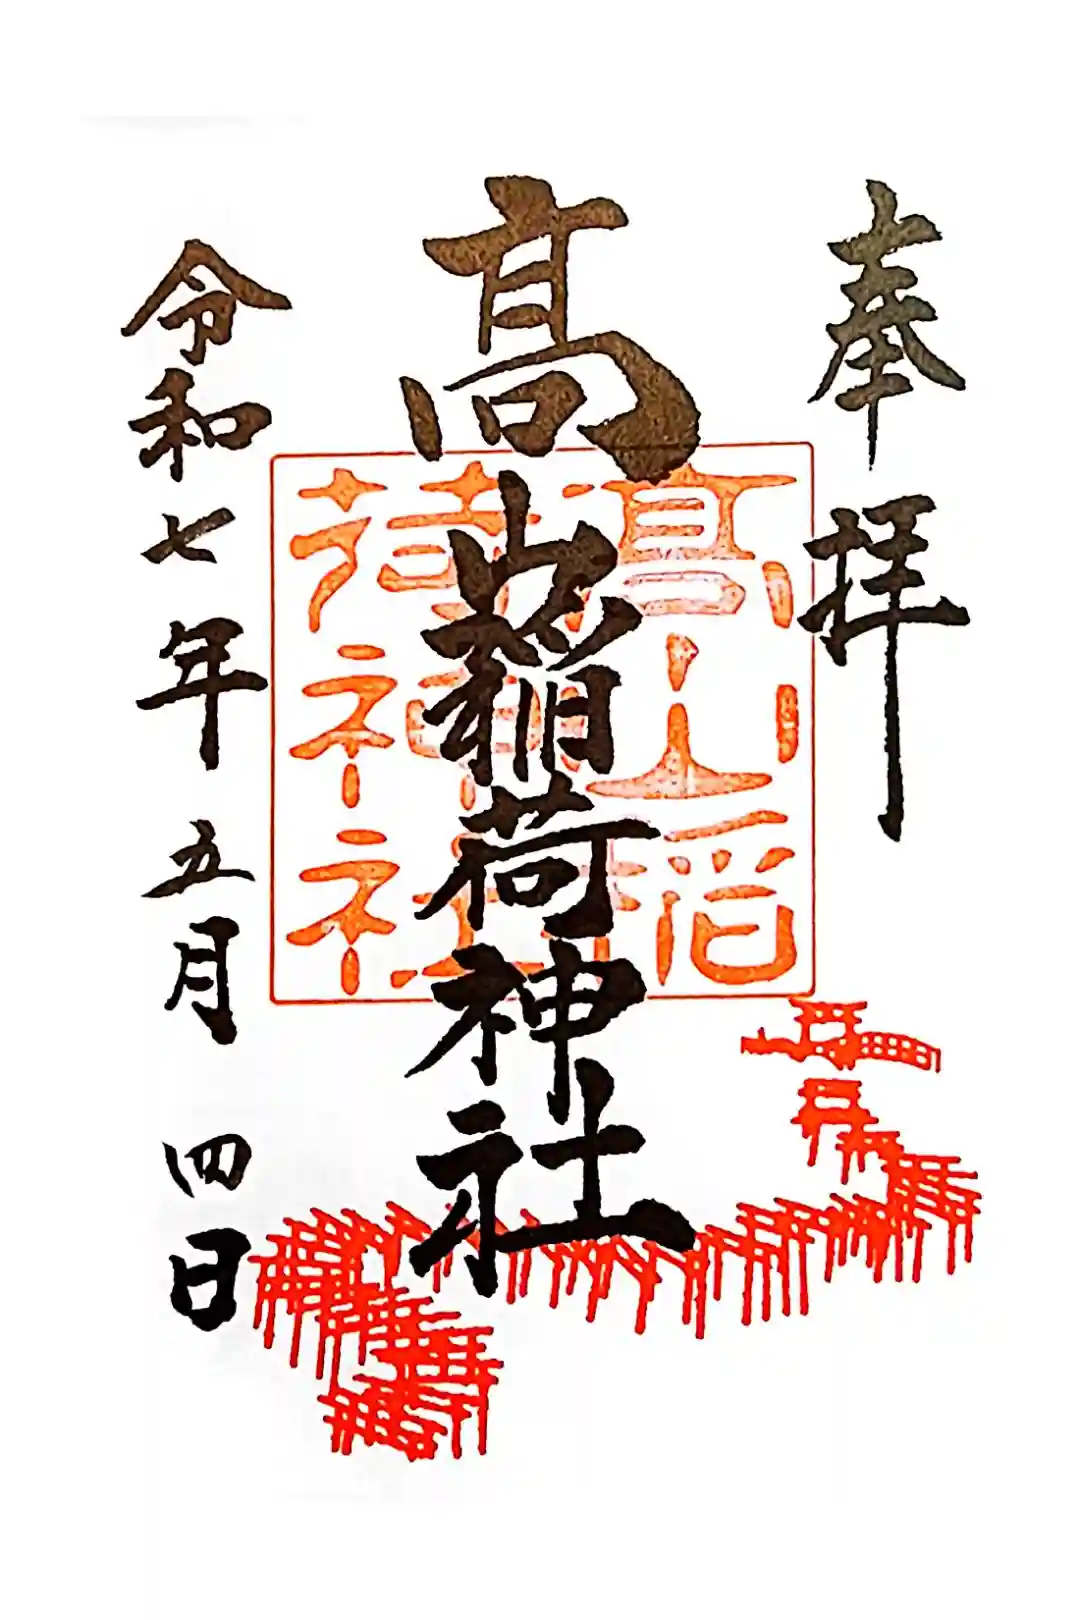 奉拝
髙山稲荷神社
令和七年五月四日
髙山稲
荷神社